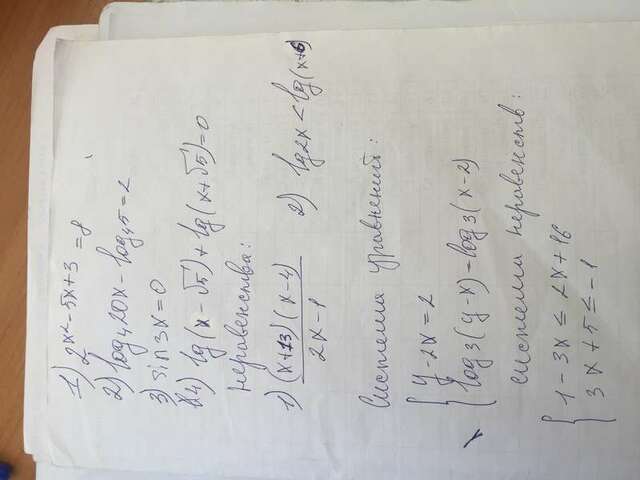 1) 2^(x²-5x+3) = 8
2) log₄20x - log₄5 = 2
3) sin 3x = 0
4) lg(x - √5) + lg(x + √5) = 0
Неравенства:
1) (x+13)(x-4) / 2x-1 2) lg 2x < lg(x+6)
Система уравнений:
{ y - 2x = 2
log₃(y-x) = log₃(x-2)
система неравенств:
{ 1 - 3x ≤ 2x + 16
3x + 5 ≤ -1